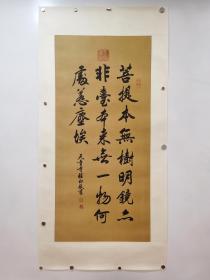 菩提本無樹明鏡亦
非臺本來無一物何
處惹塵埃
天童寺